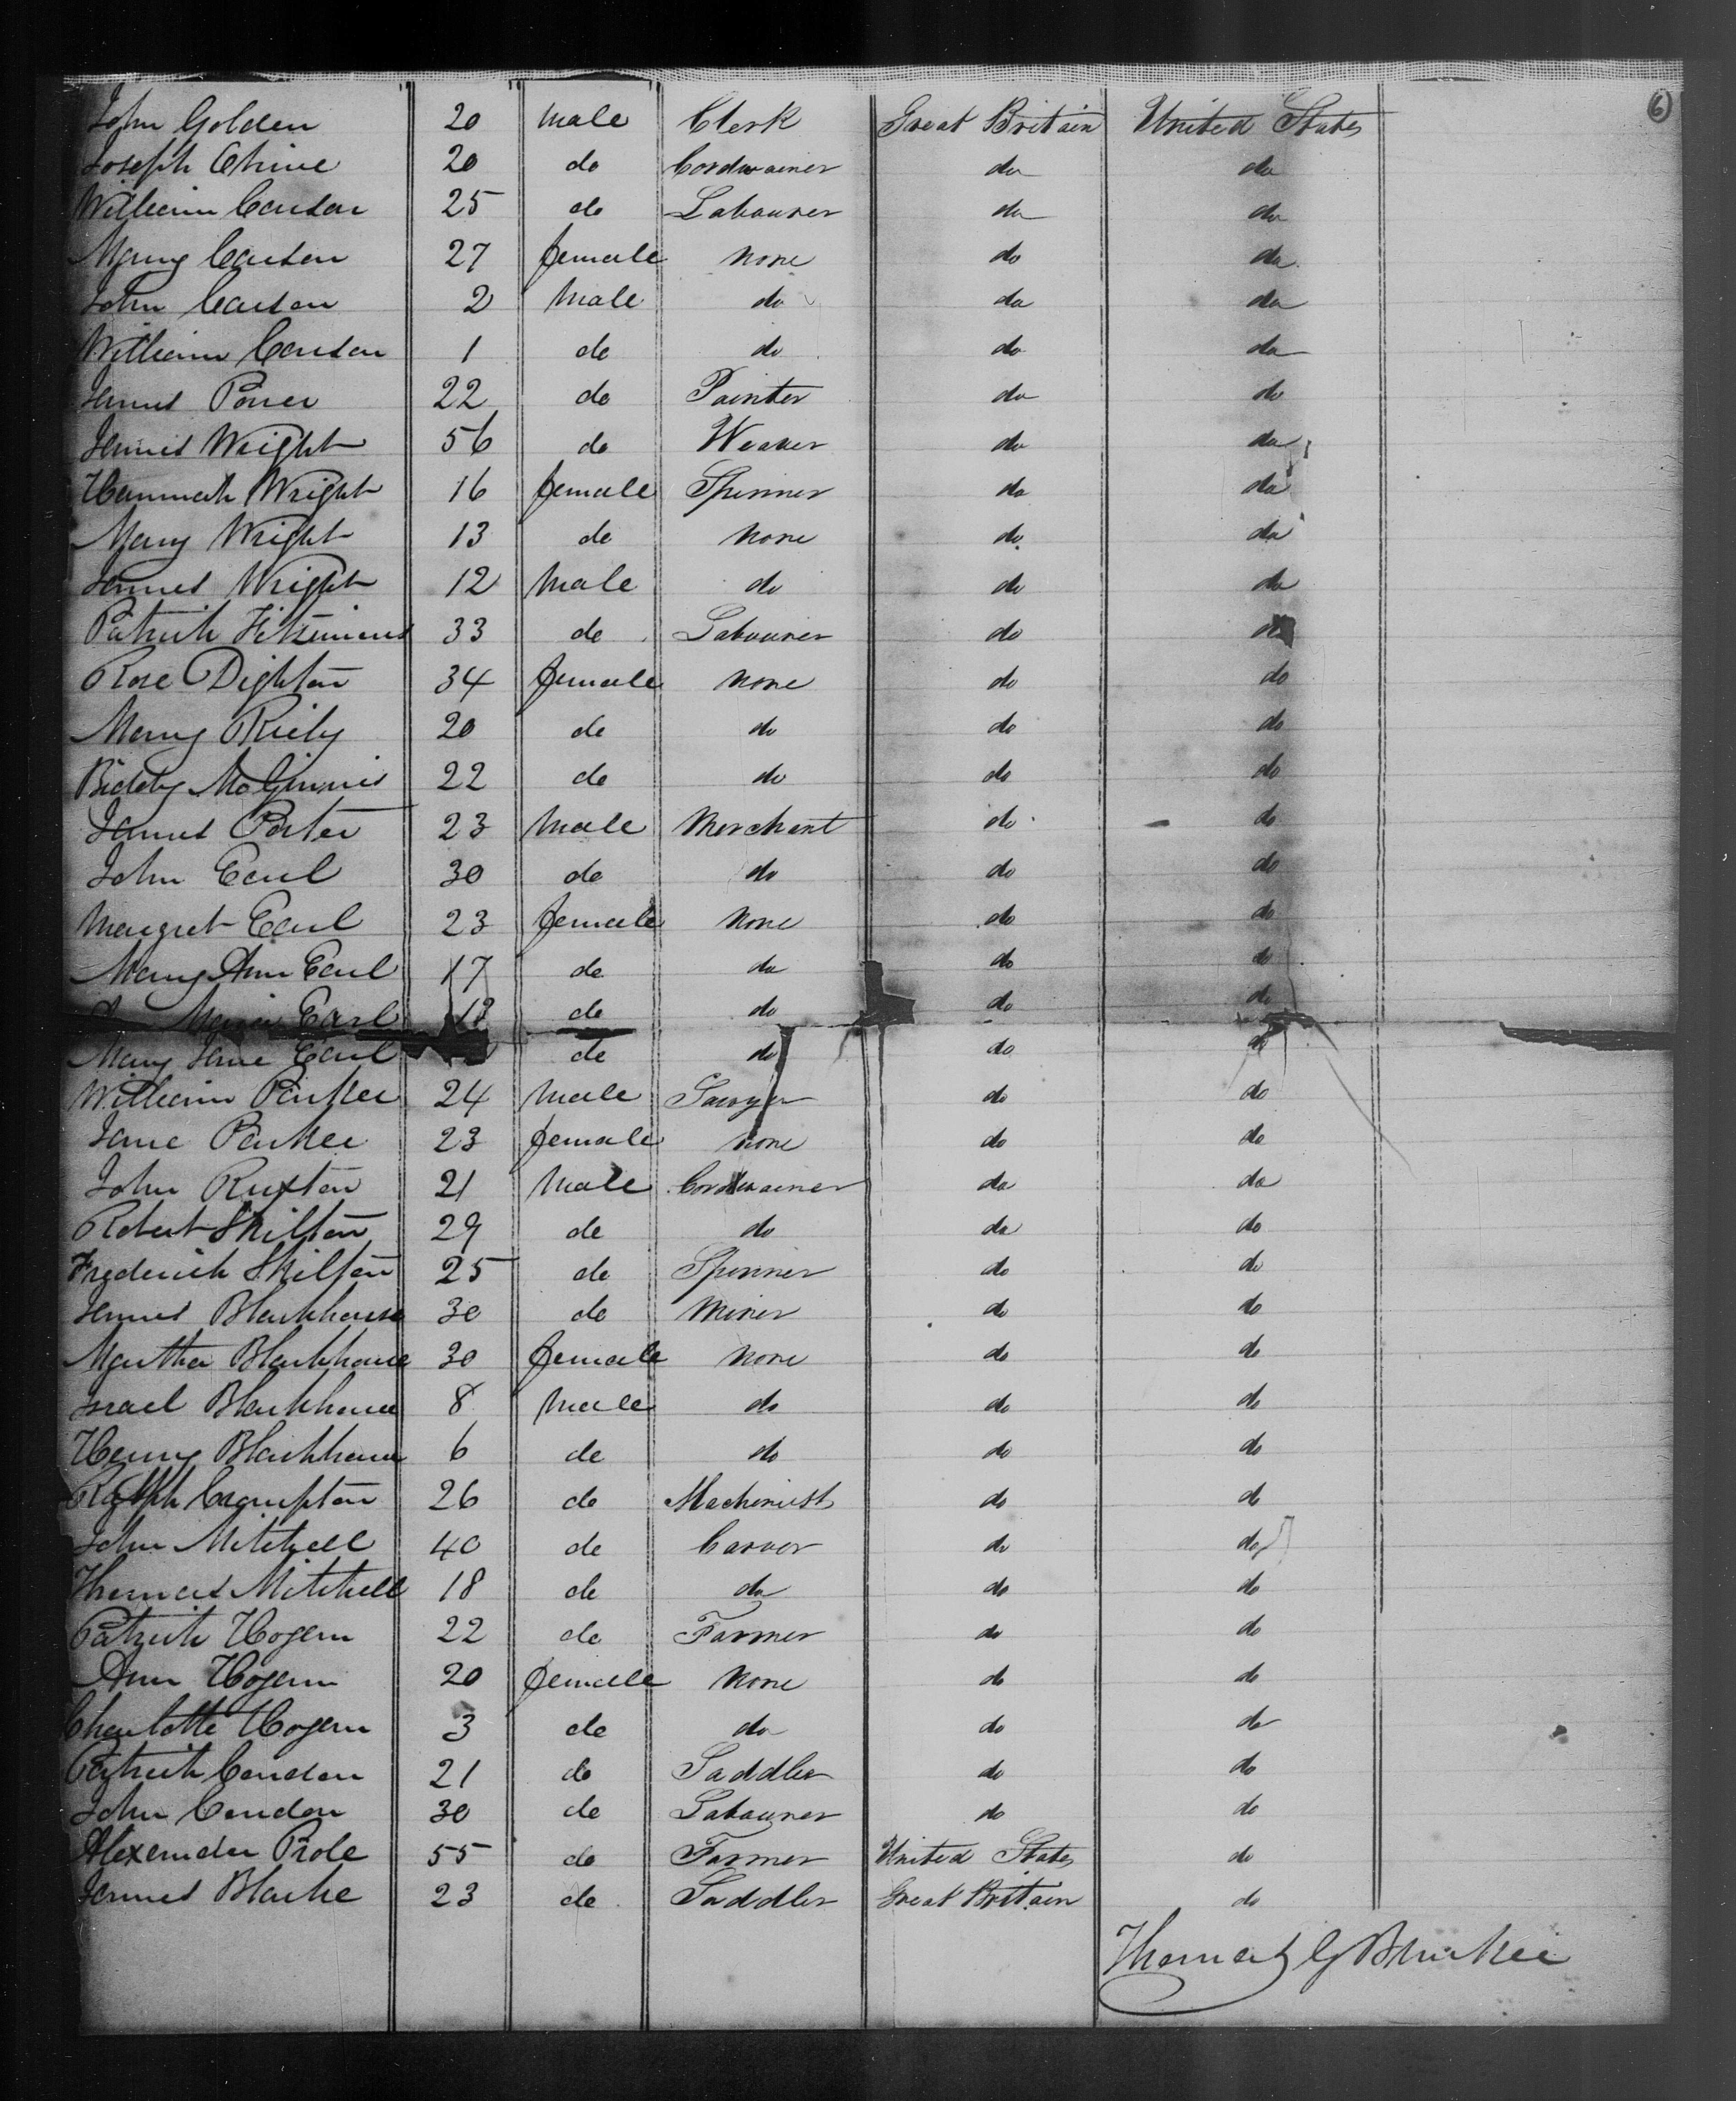 6
John Golden 20 male Clerk Great Britain United States
Joseph Chine 20 do Cordwainer do do
William Carson 25 do Labourer do do
Mary Carson 27 female none do do
John Carson 2 male do do do
William Carson 1 do do do do
James 22 do Painter do do
James Wright 56 do Weaver do do
Hannah Wright 16 female Spinner do do
Mary Wright 13 do none do do
James Wright 12 male do do do
Patrick Fitzsimons 33 do Labourer do do
Rose Dighton 34 female none do do
Mary Riely 20 do do do do
Biddy McGinnis 22 do do do do
James Porter 23 male Merchant do do
John Earl 30 do do do do
Margret Earl 23 female none do do
Mary Ann Earl 17 do do do do
Maria Earl do do do do
Mary Jane Earl do do do do
William Parker 24 male Sawyer do do
Jane Parker 23 female none do do
John Ruxton 21 male Cordwainer do do
Robert Skilton 29 do do do do
Frederick Skilton 25 do Spinner do do
James Blackhouse 30 do Miner do do
Martha Blackhouse 30 female none do do
Israel Blackhouse 8 male do do do
Henry Blackhouse 6 do do do do
Ralph Crompton 26 do Machinist do do
John Mitchell 40 do Carver do do
Thomas Mitchell 18 do do do do
Patrick Hogan 22 do Farmer do do
Ann Hogan 20 female none do do
Charlotte Hogan 3 do do do do
Patrick Condon 21 do Saddler do do
John Condon 30 do Labourer do do
Alexander Prole 55 do Farmer United States do
James Blake 23 do Saddler Great Britain do
Thomas G